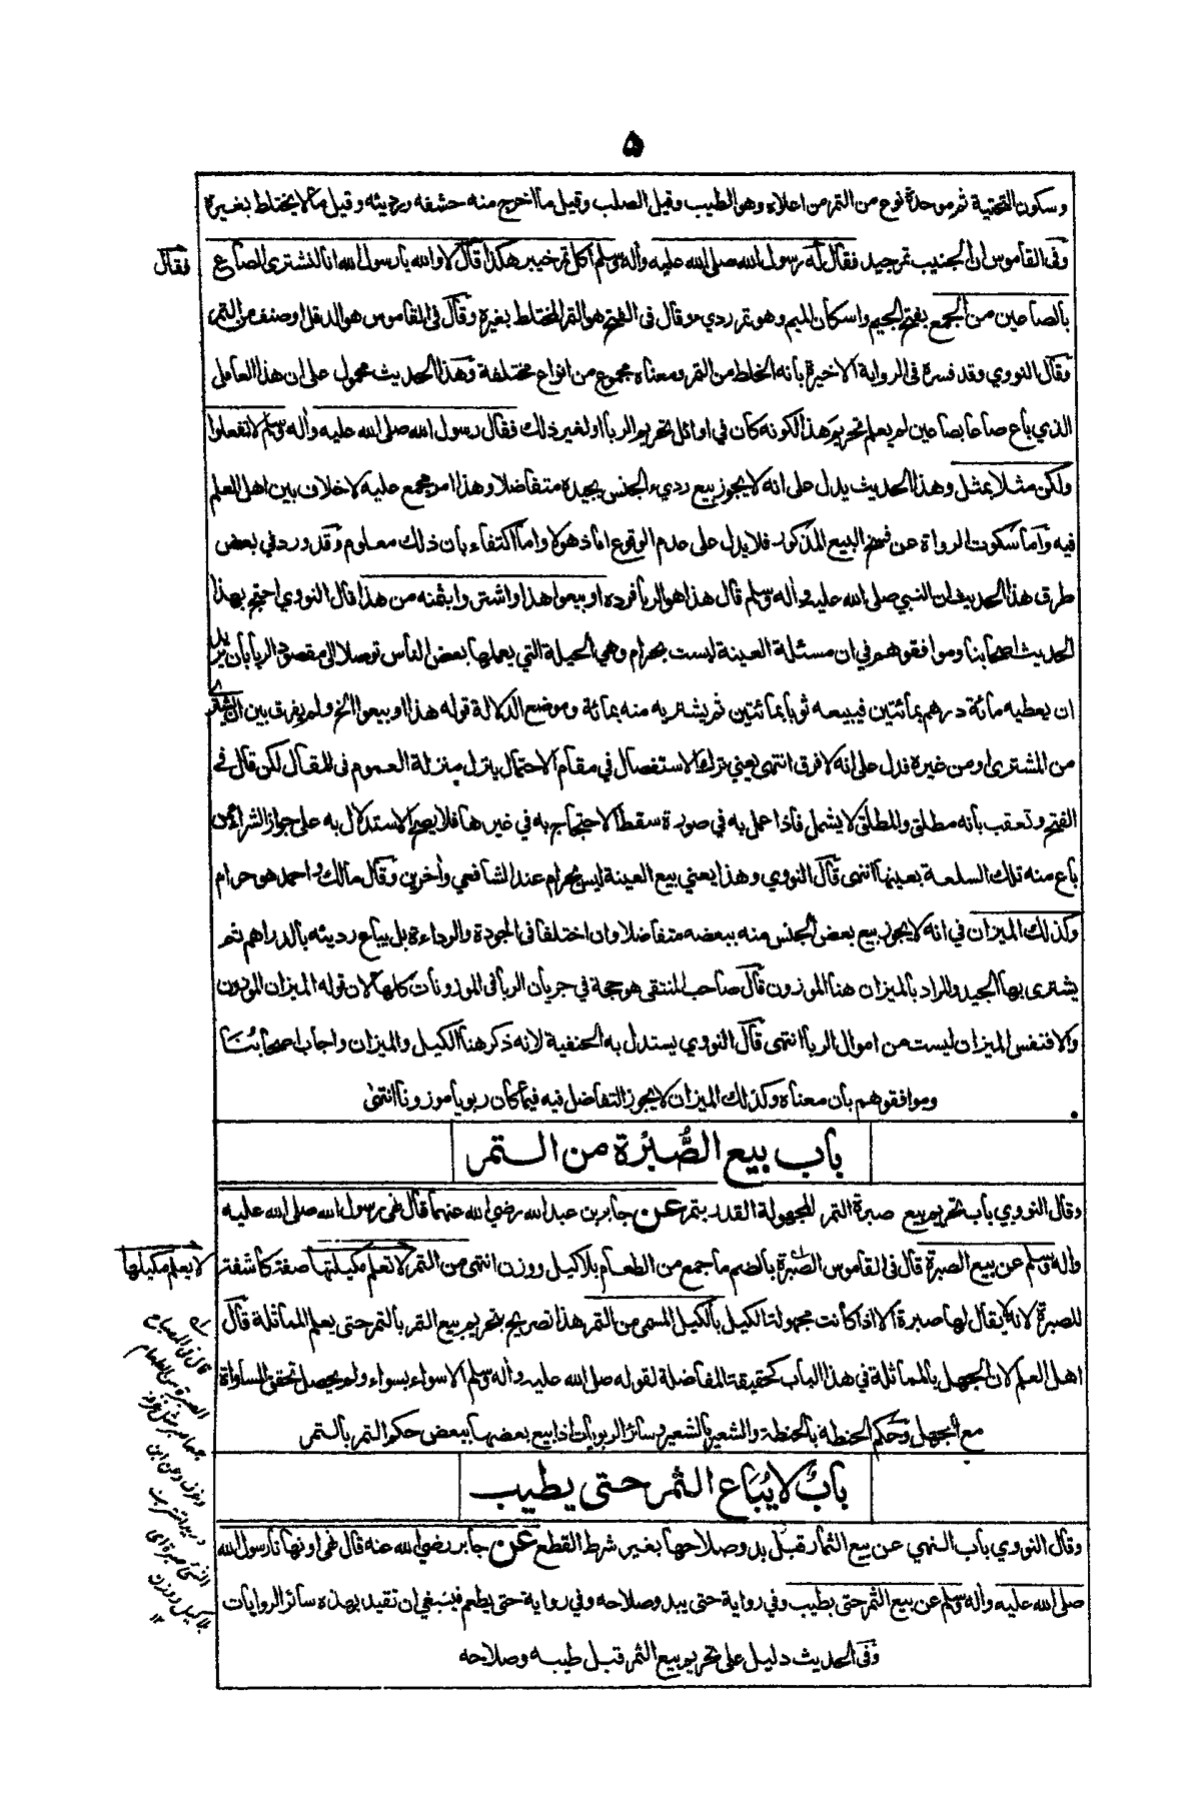 ۵
وسكون التحتية ثم موحدة نوع من التمر من اعلاه وهو الطيب وقيل الصلب وقيل ما اخرج منه حشفه ورديئه وقيل ما لا يختلط بغيره
وفى القاموس ان الجنيب تمر جيد فقال له رسول الله صلى الله عليه واله وسلم أكل تمر خيبر هكذا قال لا والله يا رسول الله انا لنشترى الصاع
فقال
بالصاعين من الجمع بفتح الجيم واسكان الميم وهو تمر ردي وقال فى الفتح هو التمر المختلط بغيره وقال فى القاموس هو الدقل او صنف من التمر
وقال النووي وقد فسره فى الرواية الاخيرة بانه الخلط من التمر ومعناه مجموع من انواع مختلفة وهذا الحديث محمول على ان هذا العامل
الذي باع صاعا بصاعين لم يعلم تحريم هذا لكونه كان في اوائل تحريم الربا او لغير ذلك فقال رسول الله صلى الله عليه واله وسلم لا تفعلوا
ولكن مثلا بمثل وهذا الحديث يدل على انه لا يجوز بيع ردي الجنس بجيده متفاضلا وهذا امر مجمع عليه لا خلاف بين اهل العلم
فيه واما سكوت الرواة عن فسخ البيع المذكور فلا يدل على عدم الوقوع اما ذهولا واما اكتفاء بان ذلك معلوم وقد ورد في بعض
طرق هذا الحديث ان النبي صلى الله عليه واله وسلم قال هذا هو الربا فرده او بيعوا هذا واشتروا بثمنه من هذا قال النووي احتج بهذا
الحديث اصحابنا وموافقوهم في ان مسئلة العينة ليست بحرام وهي الحيلة التي يعملها بعض الناس توصلا الى مقصود الربا بان يريد
ان يعطيه مائة درهم بمائتين فيبيعه ثوبا بمائتين ثم يشتريه منه بمائة وموضع الدلالة قوله هذا او بيعوا الخ ولم يفرق بين ان يشترى
من المشترى او من غيره فدل على انه لا فرق انتهى يعني ترك الاستفصال في مقام الاحتمال ينزل منزلة العموم فى المقال لكن قال فى
الفتح وتعقب بانه مطلق والمطلق لا يشمل فاذا عمل به في صورة سقط الاحتجاج به في غيرها فلا يصح الاستدلال به على جواز الشراء ممن
باع منه تلك السلعة بعينها انتهى قال النووي وهذا يعني بيع العينة ليس بحرام عند الشافعي واخرين وقال مالك واحمد هو حرام
وكذلك الميزان في انه لا يجوز بيع بعض الجنس منه ببعضه متفاضلا وان اختلفا فى الجودة والرداءة بل يباع رديئه بالدراهم ثم
يشترى بها الجيد والمراد بالميزان هنا الموزون قال صاحب المنتقى هو حجة في جريان الربا فى الموزونات كلها لان قوله الميزان الموزون
والا فنفس الميزان ليست من اموال الربا انتهى قال النووي يستدل به الحنفية لانه ذكر هنا الكيل والميزان واجاب اصحابنا
وموافقوهم بان معناه وكذلك الميزان لا يجوز التفاضل فيه فيما كان ربويا موزونا انتهى
باب بيع الصُّبْرَة من التمر
وقال النووي باب تحريم بيع صبرة التمر المجهولة القدر بتمر عن جابر بن عبد الله رضي الله عنهما قال نهى رسول الله صلى الله عليه
واله وسلم عن بيع الصبرة قال فى القاموس الصبرة بالضم ما جمع من الطعام بلا كيل ووزن انتهى من التمر لا تعلم مكيلتها صفة كاشفة
لا يعلم مكيلها
للصبرة لانه لا يقال لها صبرة الا اذا كانت مجهولة الكيل بالكيل المسمى من التمر هذا تصريح بتحريم بيع التمر بالتمر حتى يعلم المماثلة قال
اهل العلم لان الجهل بالمماثلة في هذا الباب كحقيقة المفاضلة لقوله صلى الله عليه واله وسلم الا سواء بسواء ولم يحصل تحقق المساواة
مع الجهل وحكم الحنطة بالحنطة والشعير بالشعير وسائر الربويات اذا بيع بعضها ببعض حكم التمر بالتمر
قال فى الصحاح
الصبرة من الطعام
جمعها صبر مثل غرفة
وغرف وعن ابن
دريد اشتريت
الشئ صبرة اى
بلا كيل ووزن
١٢
بابٌ لا يُبَاع الثمر حتى يطيب
وقال النووي باب النهي عن بيع الثمار قبل بدو صلاحها بغير شرط القطع عن جابر رضي الله عنه قال نهى او نهانا رسول الله
صلى الله عليه واله وسلم عن بيع الثمر حتى يطيب وفي رواية حتى يبدو صلاحه وفي رواية حتى يطعم فينبغي ان تقيد بهذه سائر الروايات
وفى الحديث دليل على تحريم بيع الثمر قبل طيبه وصلاحه